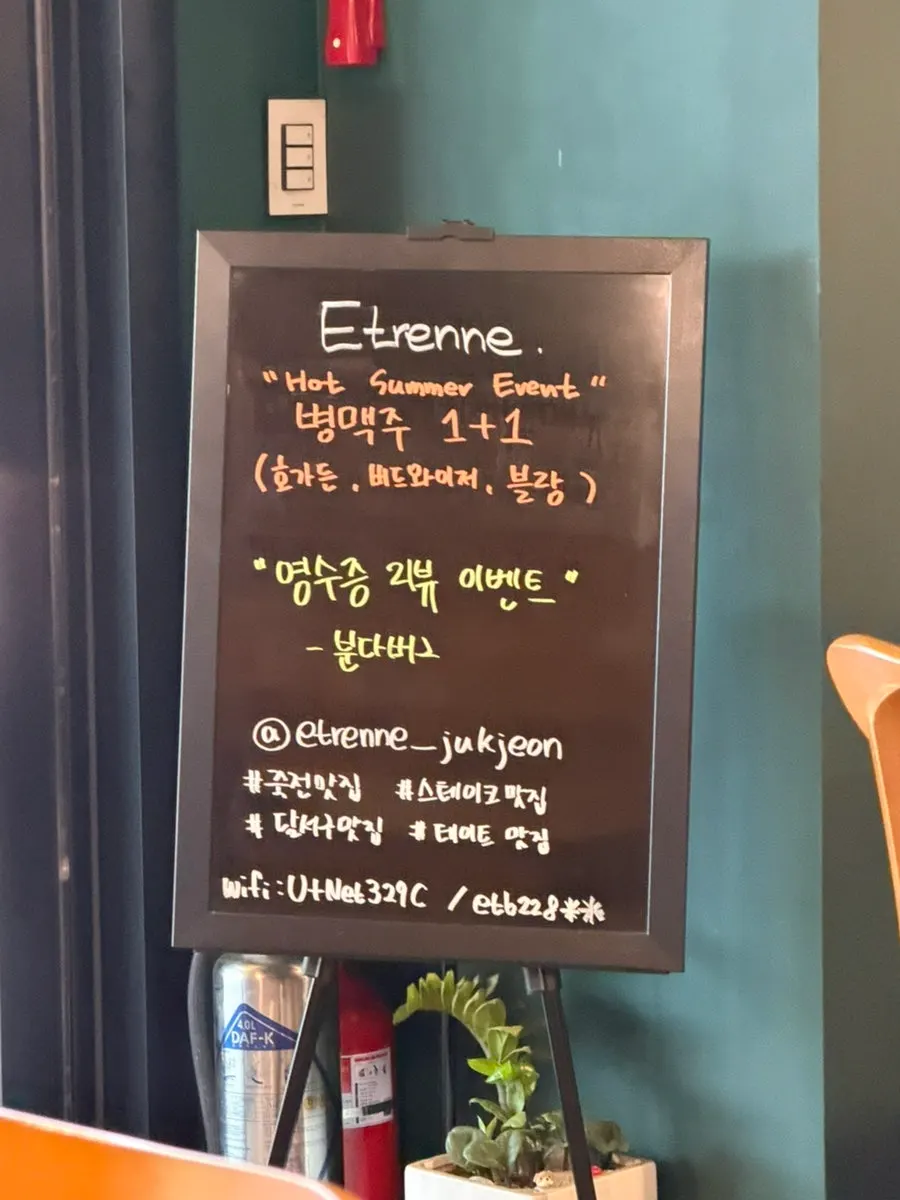 Etrenne.
"Hot Summer Event"
병맥주 1+1
(호가든, 버드와이저, 블랑)
"영수증 리뷰 이벤트"
- 분다버그
@etrenne_jukjeon
#죽전맛집 #스테이크맛집
#달서구맛집 #데이트 맛집
wifi: U+Net329C / etb228**
4.0L
DAF-K